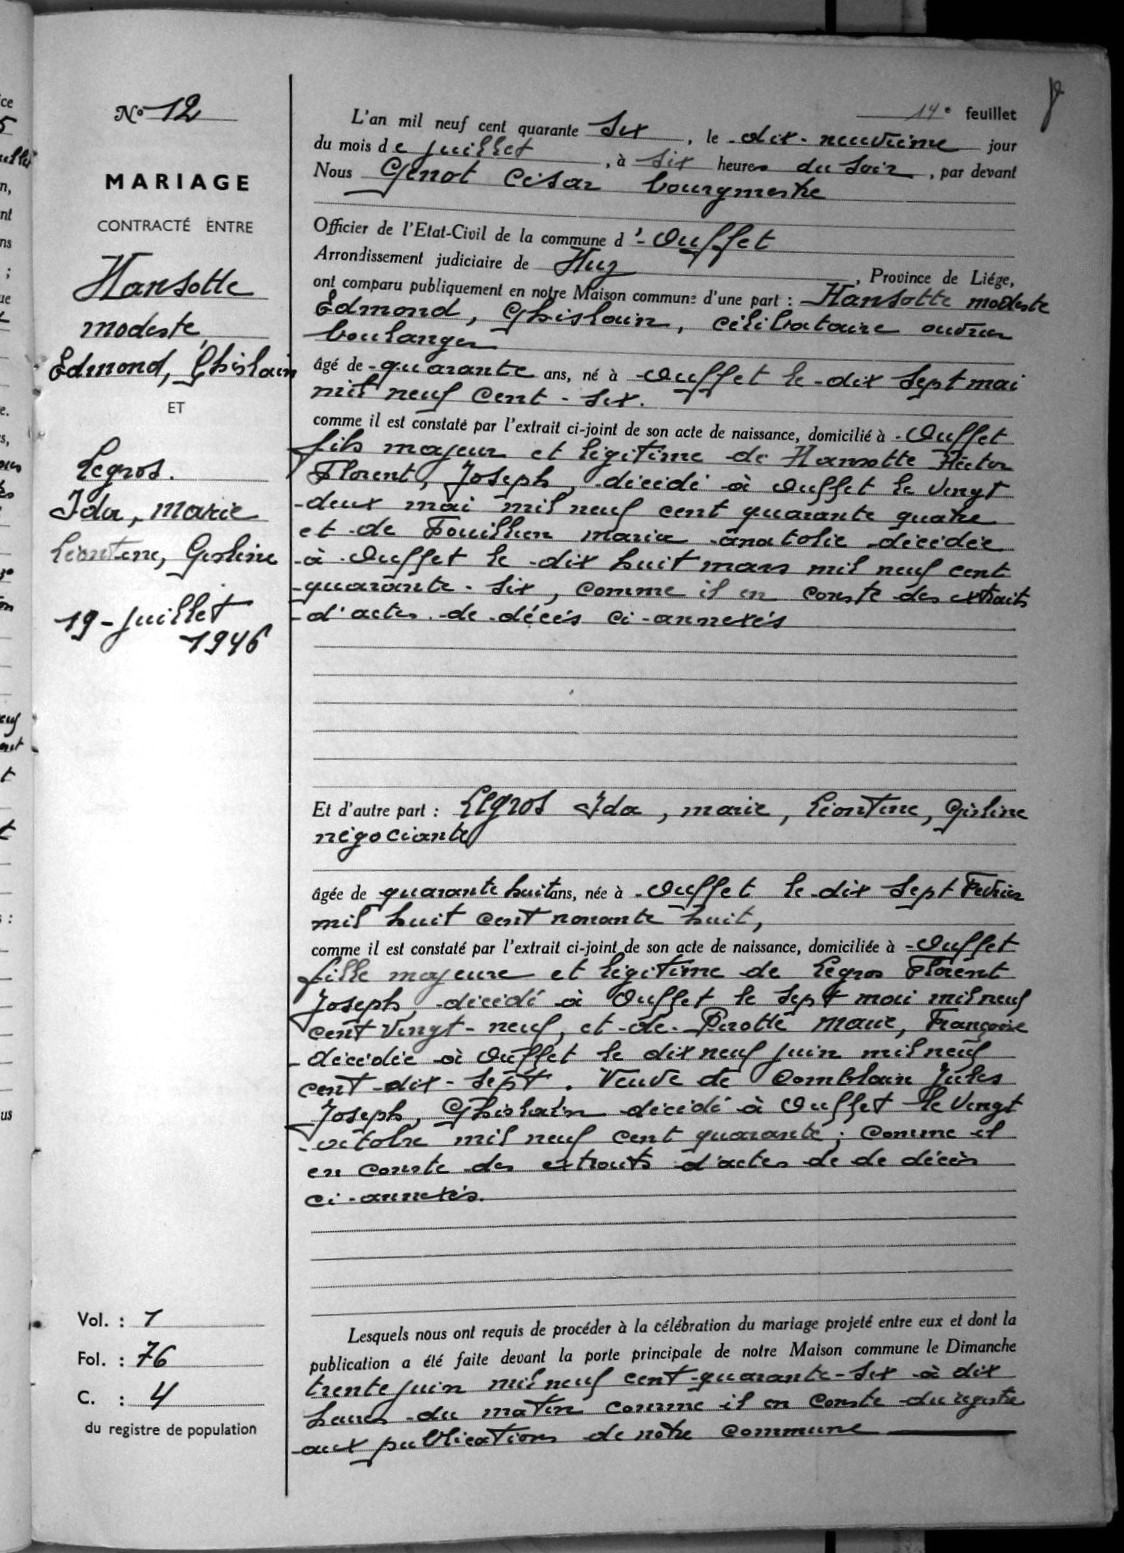 N° 12
MARIAGE
CONTRACTÉ ENTRE
Hansotte
modeste,
Edmond, Ghislain
ET
Legros.
Ida, marie
Léontine, Gisline
19 - juillet
1946
Vol. : 1
Fol. : 76
C. : 4
du registre de population
14e feuillet
L'an mil neuf cent quarante six, le dix-neuvième jour
du mois de juillet, à six heures du soir, par devant
Nous Genot César bourgmestre
Officier de l'Etat-Civil de la commune d'Ouffet
Arrondissement judiciaire de Huy, Province de Liége,
ont comparu publiquement en notre Maison commune d'une part : Hansotte modeste
Edmond, Ghislain, célibataire ouvrier
boulanger
âgé de quarante ans, né à Ouffet le dix sept mai
mil neuf cent-six.
comme il est constaté par l'extrait ci-joint de son acte de naissance, domicilié à Ouffet
fils majeur et légitime de Hansotte Hector
Florent, Joseph, décédé à Ouffet le vingt
deux mai mil neuf cent quarante quatre
et de Fouillien maria anatolie décédée
à Ouffet le dix huit mars mil neuf cent
quarante-six, comme il en conste des extraits
d'actes de décès ci-annexés
Et d'autre part : Legros Ida, marie, Léontine, Gisline
négociante
âgée de quarante huit ans, née à Ouffet le dix sept Février
mil huit cent nonante huit,
comme il est constaté par l'extrait ci-joint de son acte de naissance, domiciliée à Ouffet
fille majeure et légitime de Legros Florent
Joseph, décédé à Ouffet le sept mai mil neuf
cent vingt-neuf, et de Pirotte marie, Françoise
décédée à Ouffet le dix neuf juin mil neuf
cent-dix-sept. Veuve de Comblain Jules
Joseph, Ghislain décédé à Ouffet le vingt
octobre mil neuf cent quarante; comme il
en conste des extraits d'actes de de décès
ci-annexés.
Lesquels nous ont requis de procéder à la célébration du mariage projeté entre eux et dont la
publication a été faite devant la porte principale de notre Maison commune le Dimanche
trente juin mil neuf cent-quarante-six à dix
heures du matin comme il en conste du registre
aux publications de notre commune